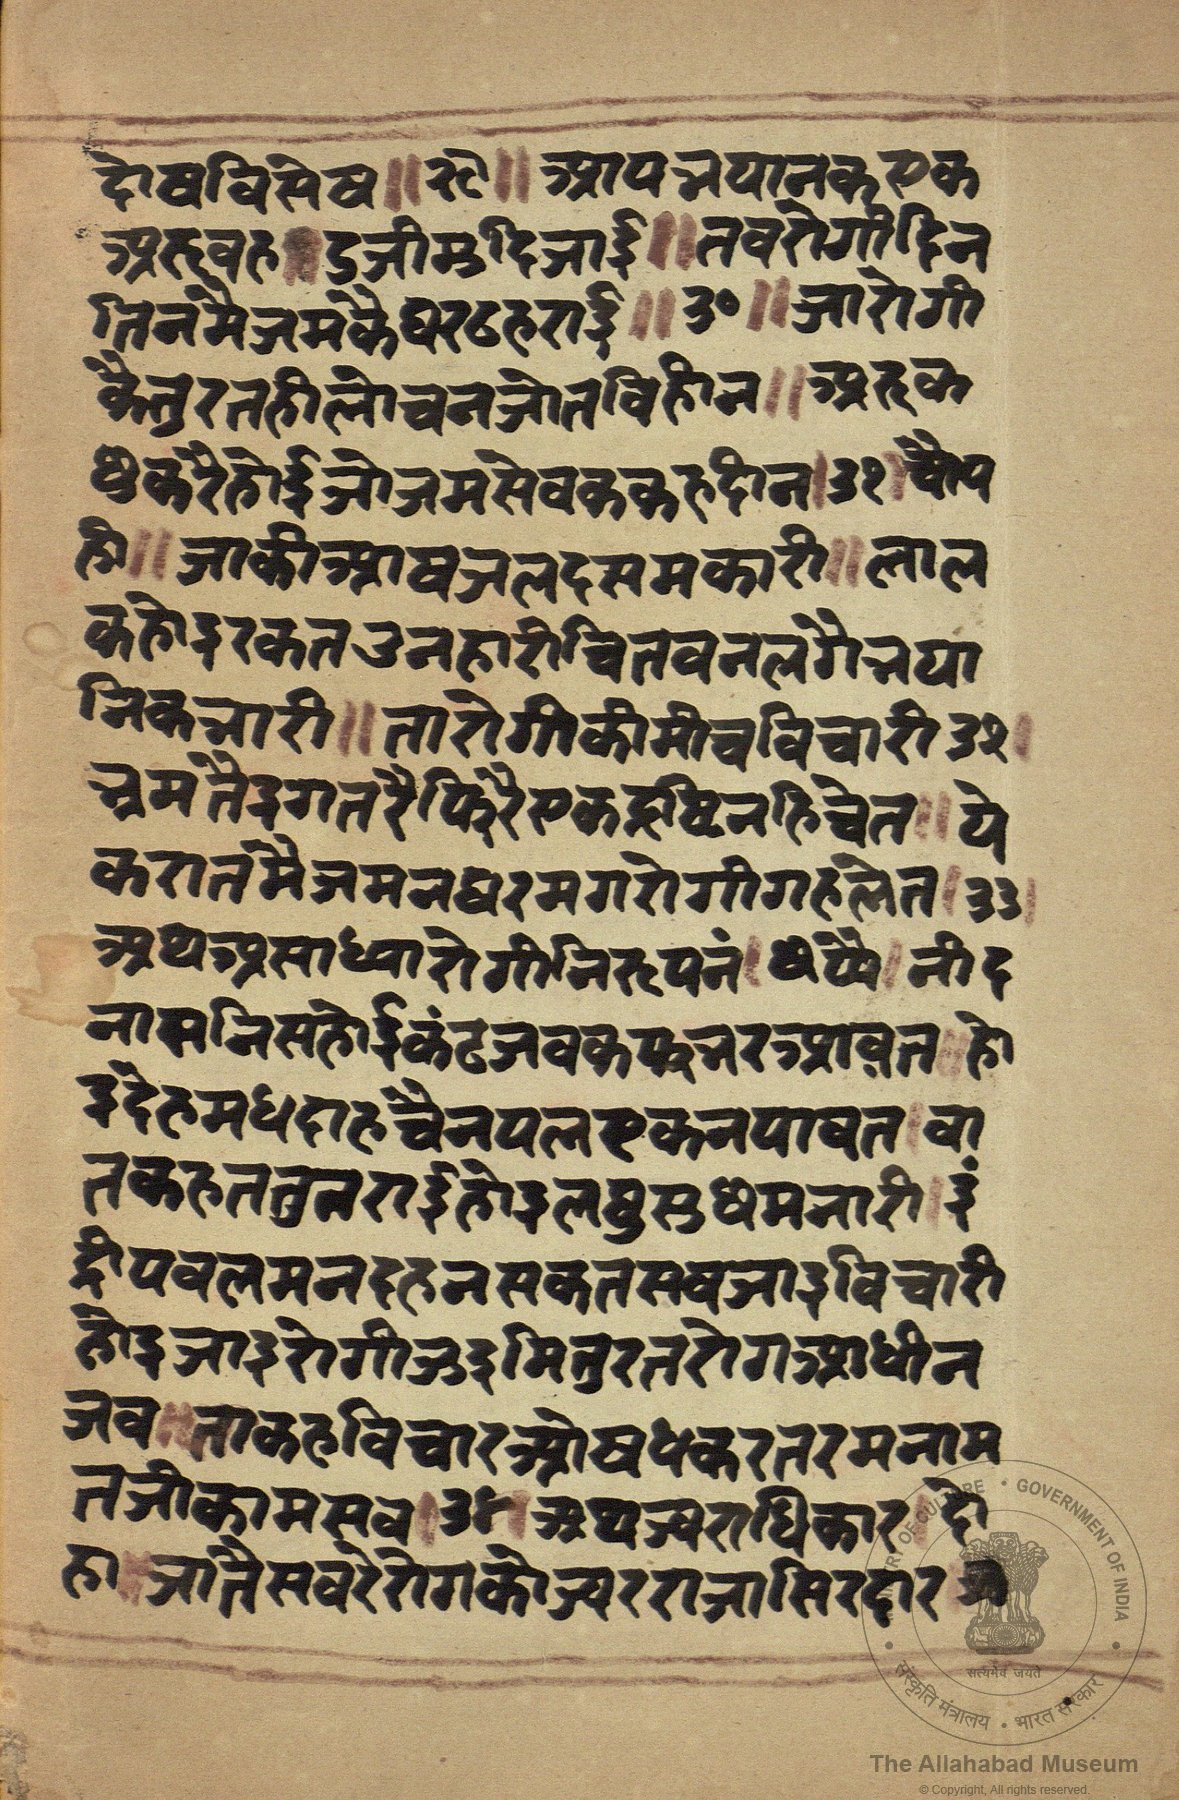 दोषविसेष ॥ २९ ॥ आपनयानकएक
अरूवह डुजीमुदिजाई ॥ तबरोगीदिन
तिनमैजमकैघरठहराई ॥ ३० ॥ जारोगी
कैतुरतहीलोचनजोतविहीन ॥ अरूक
छुकरैहोईजोजमसेवककहदीन । ३१ । चौप
ही ॥ जाकीआषजलदसमकारी ॥ लाल
कहोइरकतउनहारीचितवनलगैनया
निकनारी ॥ तारोगीकीमीचविचारी ३२ ।
नमतैइगतरैफिरैएकद्रष्टिनहिचेत ॥ ये
करातमैजमनघरमगरोगीगहलेत । ३३ ।
अथअसाध्यारोगीनिरूपनं । छप्पै । नीद
नासनिसहोईकंठजवकफनरआवत ॥ हो
इदेहमधदाहचैनपलएकनपावत । वा
तकहततुतराईहोइलघुसुछमनारी । इं
द्रीपवलमनदहनसकतसबजाइविचारी
होइजाइरोगीजइमितुरतरोगआधीन
जव ॥ ताकहविचारऔषधकरतरमनाम
तजीकामसव । ३४ । अथज्वराधिकार । दो
हा ॥ जातैसवरेरोगकौज्वरराजासिरदार ॥
सत्यमेव जयते
MINISTRY OF CULTURE • GOVERNMENT OF INDIA
संस्कृति मंत्रालय • भारत सरकार
The Allahabad Museum
© Copyright, All rights reserved.